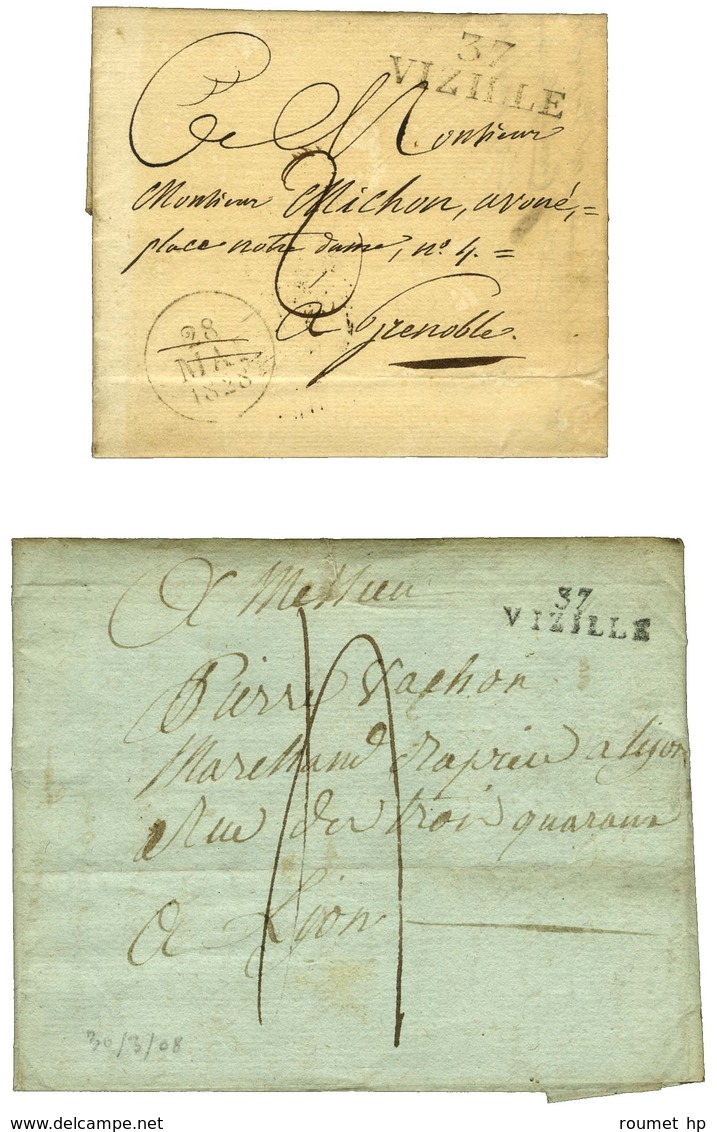 37
VIZILLE
A Monsieur
Monsieur Michon, avoué, =
place notre dame, n° 4. =
2
A Grenoble.
28
MAI
1828
A Messieu
37
VIZILLE
Pierre Vachon
Marchand Drapier a lyon
Rue des trois
a Lyon
30/3/08
roumet hp